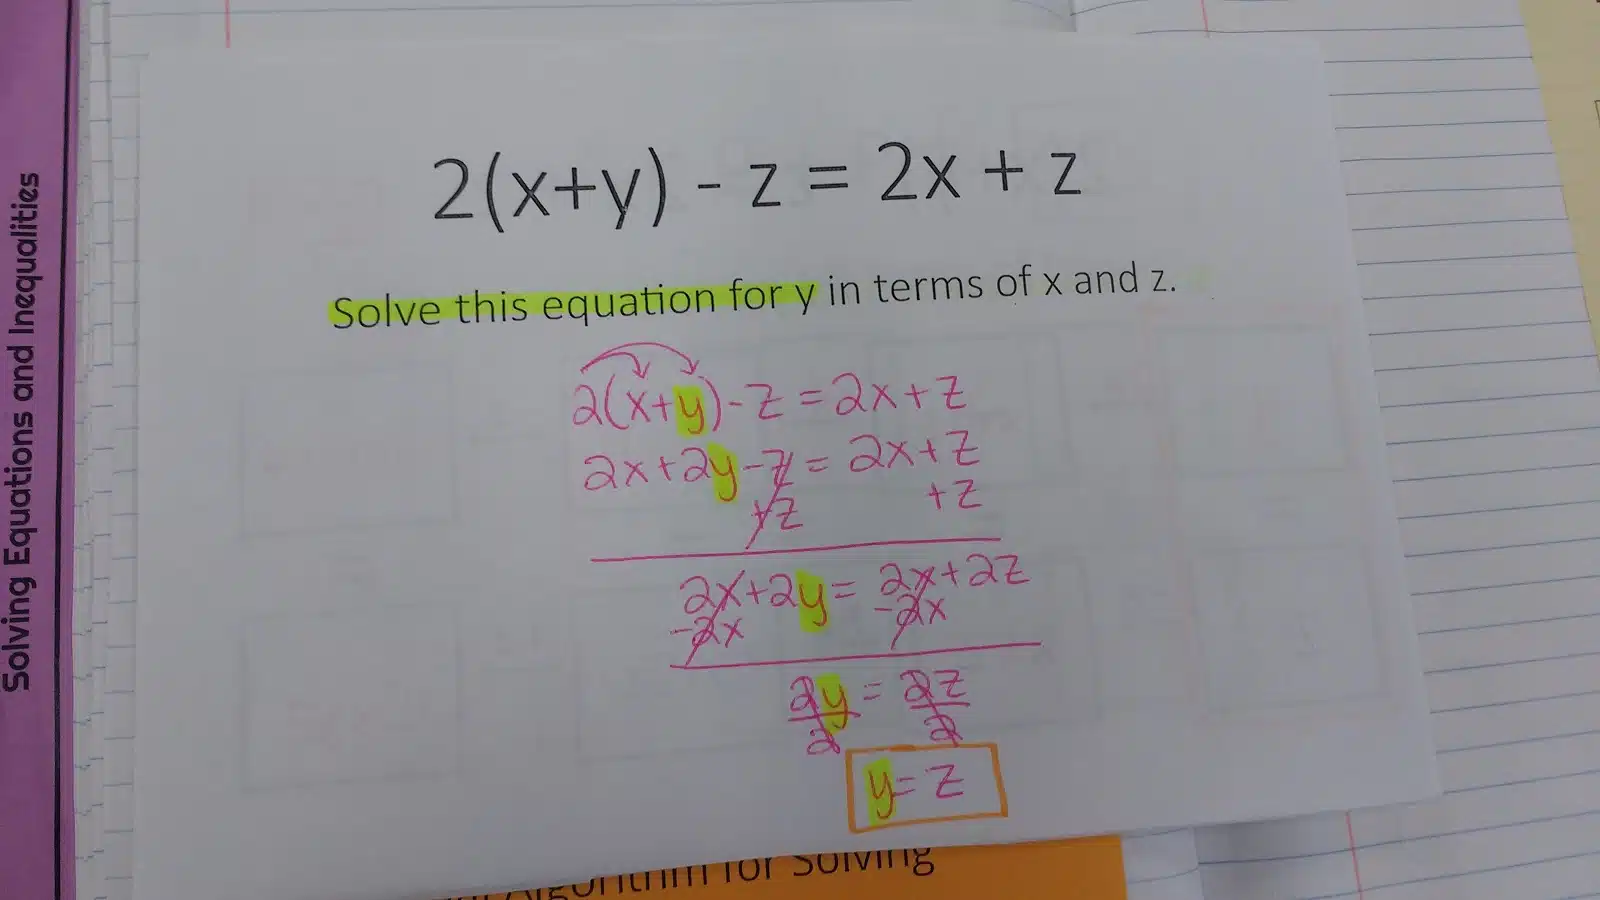 Solving Equations and Inequalities
2(x+y) - z = 2x + z
Solve this equation for y in terms of x and z.
2(x+y)-z=2x+z
2x+2y-z=2x+z
+z +z
2x+2y=2x+2z
-2x -2x
2y = 2z
2 2
y=z
Algorithm for Solving